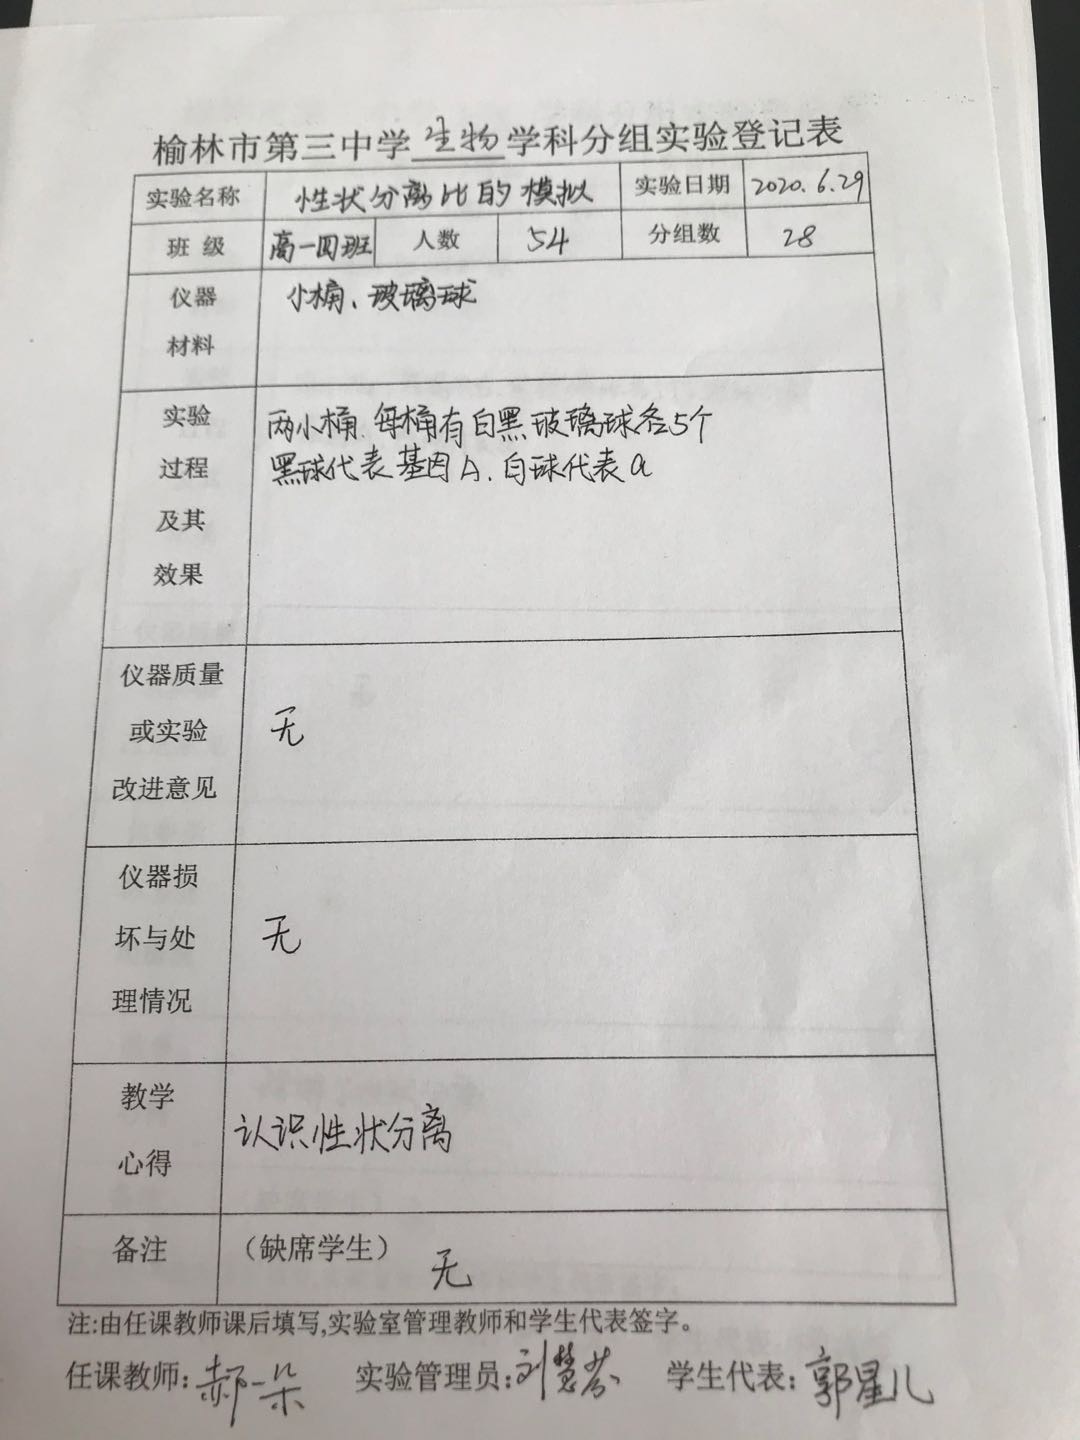 榆林市第三中学生物学科分组实验登记表
实验名称 性状分离比的模拟 实验日期 2020.6.29
班 级 高一四班 人数 54 分组数 28
仪器 小桶、玻璃球
材料
实验 两小桶.每桶有白黑玻璃球各5个
过程 黑球代表基因A.白球代表a
及其
效果
仪器质量
或实验 无
改进意见
仪器损
坏与处 无
理情况
教学 认识性状分离
心得
备注 (缺席学生) 无
注:由任课教师课后填写,实验室管理教师和学生代表签字。
任课教师:郝一朵 实验管理员:刘慧芬 学生代表:郭星儿